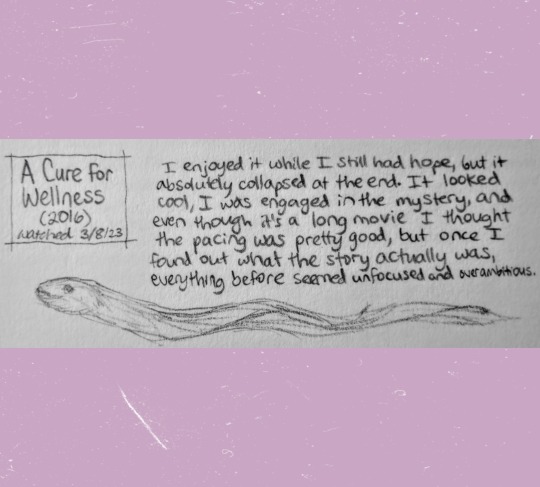 A Cure for
Wellness
(2016)
watched 3/8/23
I enjoyed it while I still had hope, but it
absolutely collapsed at the end. It looked
cool, I was engaged in the mystery, and
even though it's a long movie I thought
the pacing was pretty good, but once I
found out what the story actually was,
everything before seemed unfocused and overambitious.